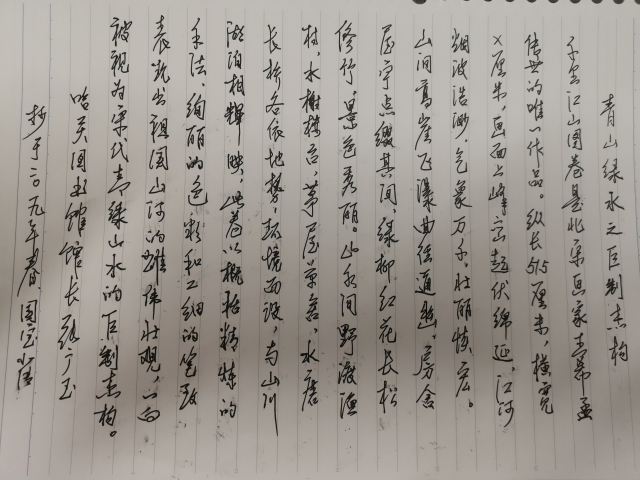 青山绿水之巨制杰构
千里江山图卷是北宋画家王希孟
传世的唯一作品。纵长51.5厘米，横宽
X厘米，画面上峰峦起伏绵延，江河
烟波浩渺，气象万千，壮丽恢宏。
山间高崖飞瀑曲径通幽，房舍
屋宇点缀其间，绿柳红花长松
修竹，景色秀丽。山水间野渡渔
村，水榭楼台，茅屋草舍，水磨
长桥各依地势，环境而设，与山川
湖泊相辉映，此卷以概括精炼的
手法、绚丽的色彩和工细的笔致
表现出祖国山河的雄伟壮观，一向
被视为宋代青绿山水的巨制杰构。
哈 图书馆馆长张广玉
抄于二〇一九年春 周宝